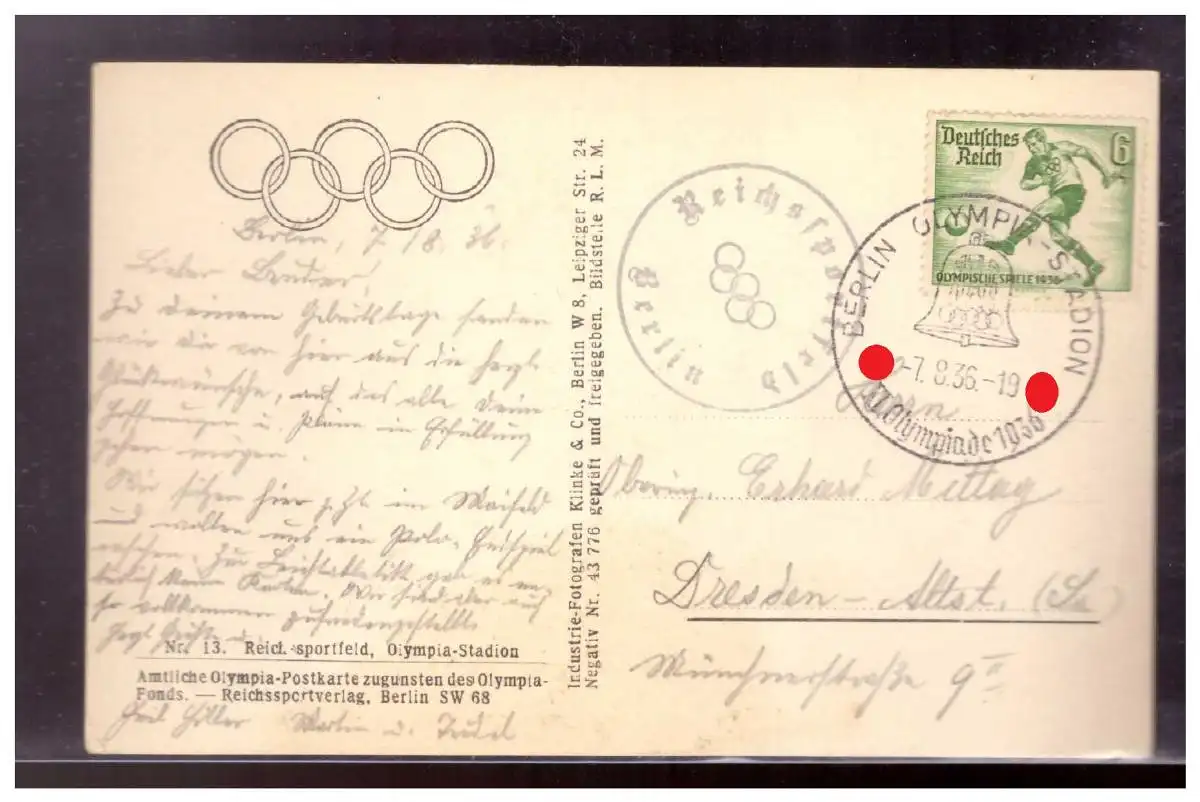 Berlin, 7./8. 36.
Lieber Bruder!
Zu Deinem Geburtstage senden
wir Dir von hier aus die herzl.
Glückwünsche, auf das alle Deine
Hoffnungen u. Pläne in Erfüllung
gehen mögen.
Wir sitzen hier z. Zt. im Maifeld
und wollen uns ein Polo-
ansehen. Zur Leichtathletik gab es
keine Karten. Wir sind aber auch
so vollkommen
Herzl. Grüße u.
Nr. 13. Reichssportfeld, Olympia-Stadion
Amtliche Olympia-Postkarte zugunsten des Olympia-
Fonds. — Reichssportverlag, Berlin SW 68
Heil Hitler Martin u.
Industrie-Fotografen Klinke & Co., Berlin W 8, Leipziger Str. 24
Negativ Nr. 43 776 geprüft und freigegeben. Bildstelle R. L. M.
Reichssportfeld
Berlin
Deutsches
Reich
6
OLYMPISCHE SPIELE 1936
BERLIN OLYMPIA-STADION
-7.8.36.-19
XI. Olympiade 1936
Herrn
Obering. Erhard Mittag
Dresden - Altst. (Sa)
Münchnerstraße 9 II